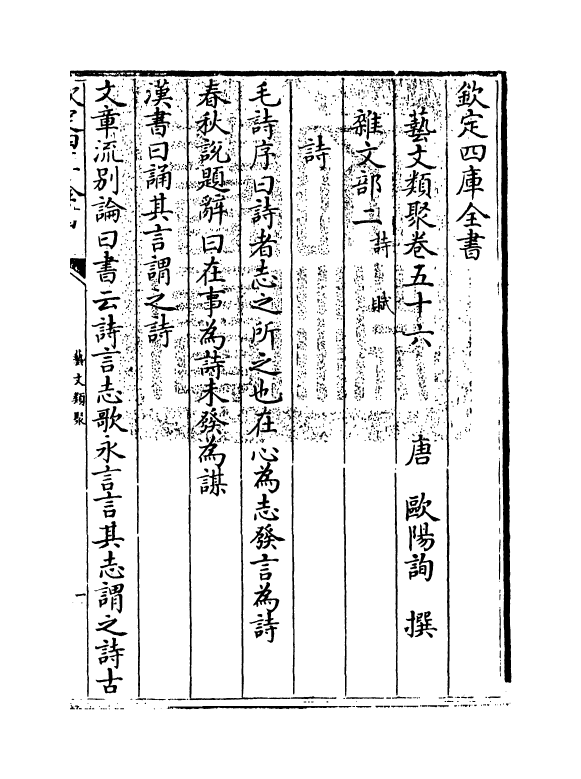 欽定四庫全書
藝文類聚卷五十六　唐　歐陽詢　撰
雜文部二詩　賦
詩
毛詩序曰詩者志之所之也在心為志發言為詩
春秋說題辭曰在事為詩未發為謀
漢書曰誦其言謂之詩
文章流別論曰書云詩言志歌永言言其志謂之詩古
欽定四庫全書
藝文類聚
一